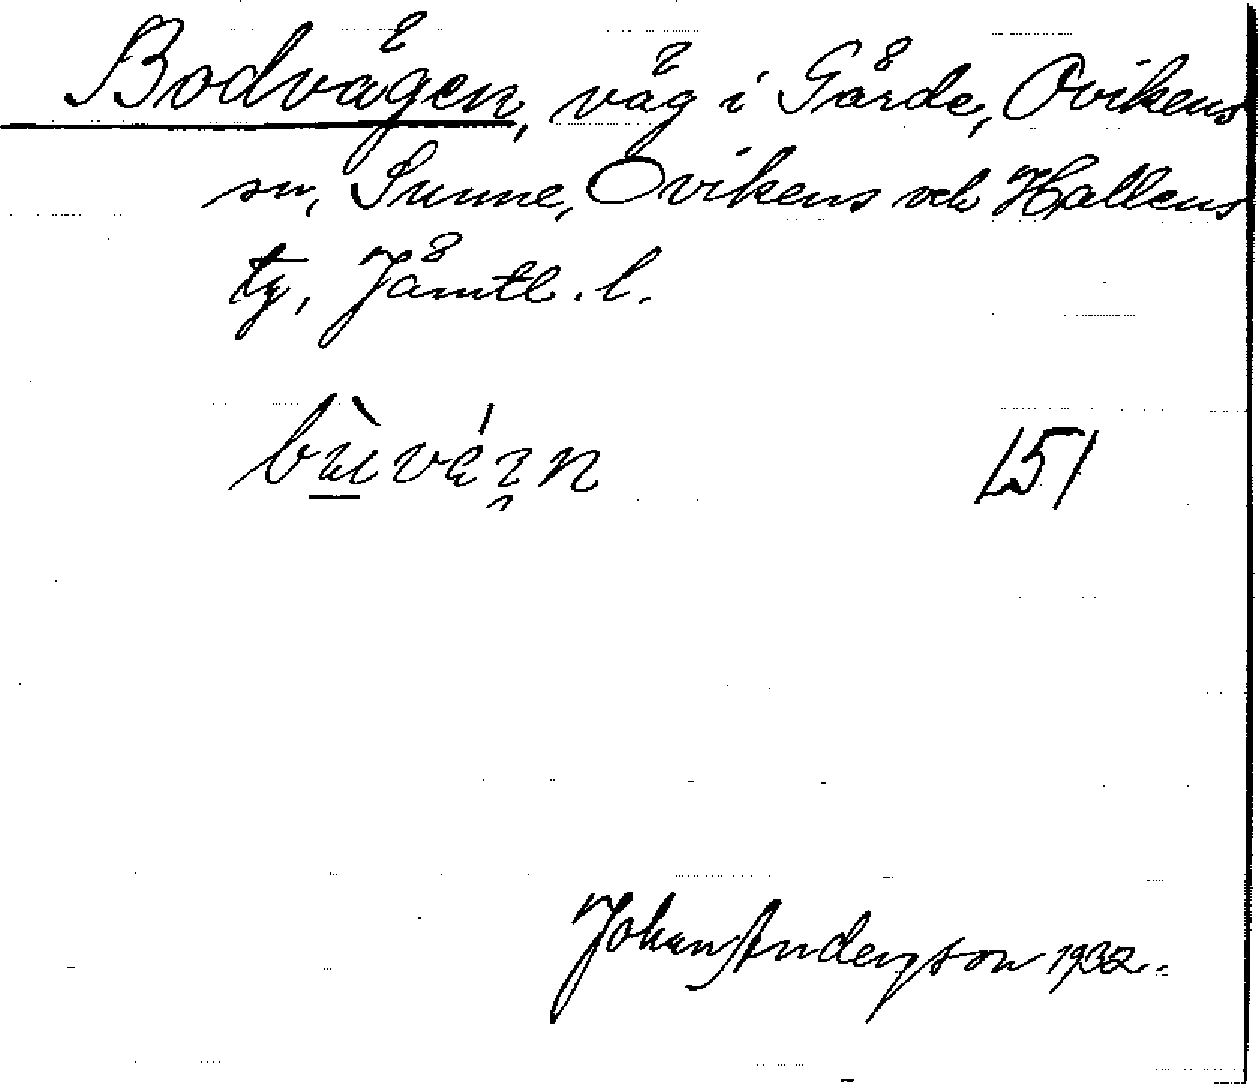 Bodvägen, väg i Gärde, Ovikens
sn, Sunne, Ovikens och Hallens
tg, Jämtl. l.
151
Johan Anderson 1932.